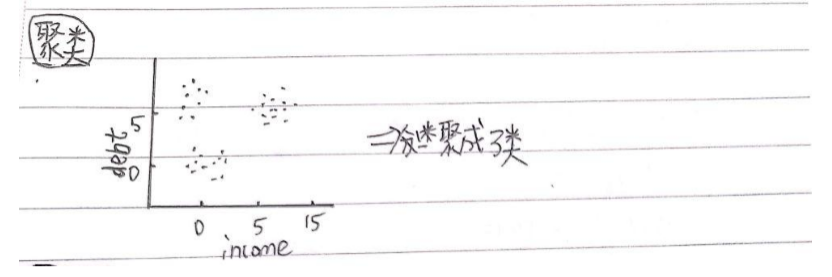 聚类
5
debt
0
⇒ 聚成3类
0 5 15
income